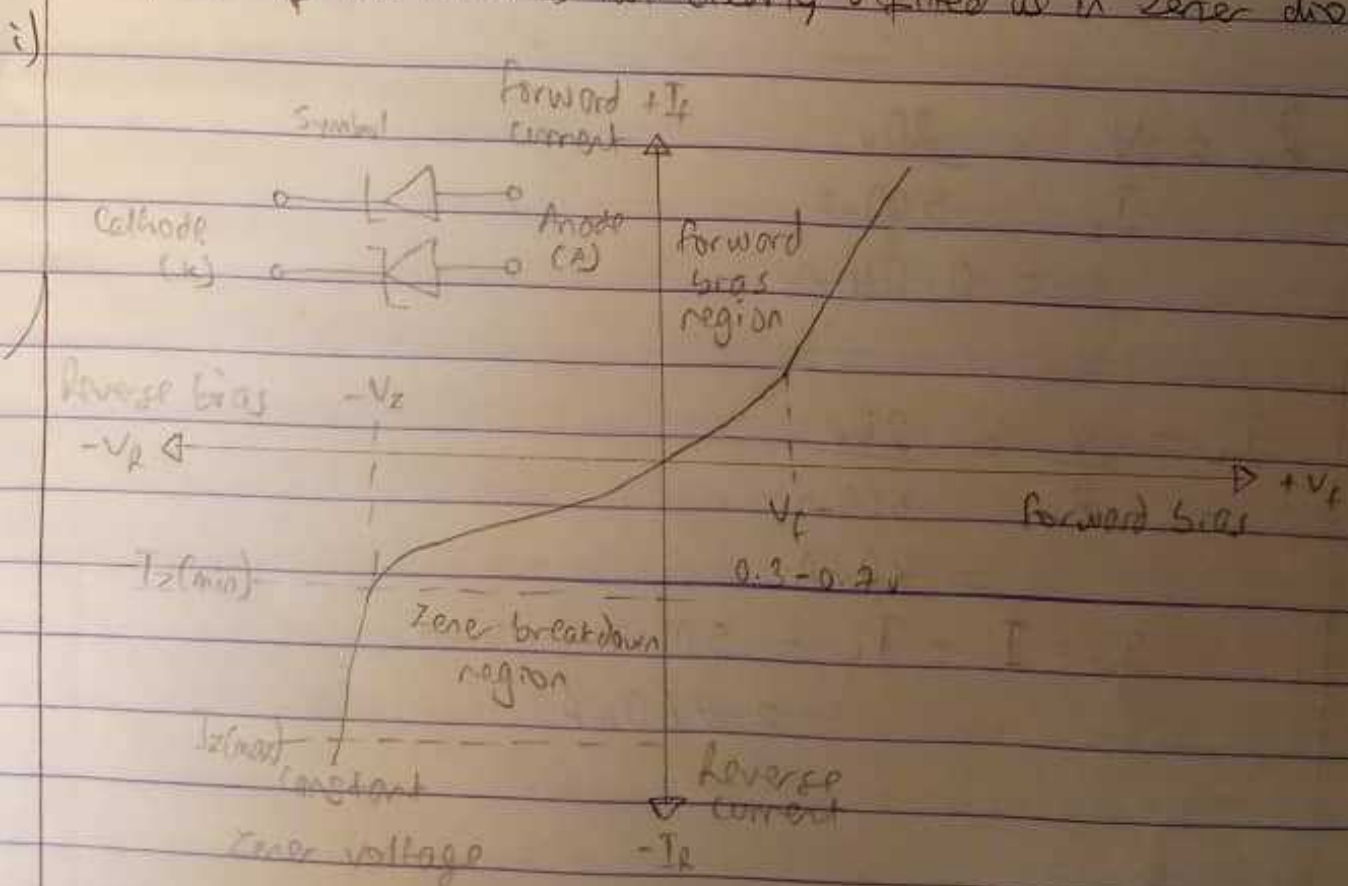 clearly defined as in Zener dio
i)
Symbol
Forward +If
current
Cathode
(K)
Anode
(A)
forward
bias
region
Reverse bias
-Vz
-VR
+Vf
Forward bias
Vf
0.3-0.7v
Iz(min)
Zener breakdown
region
Iz(max)
Constant
Zener voltage
Reverse
current
-IR